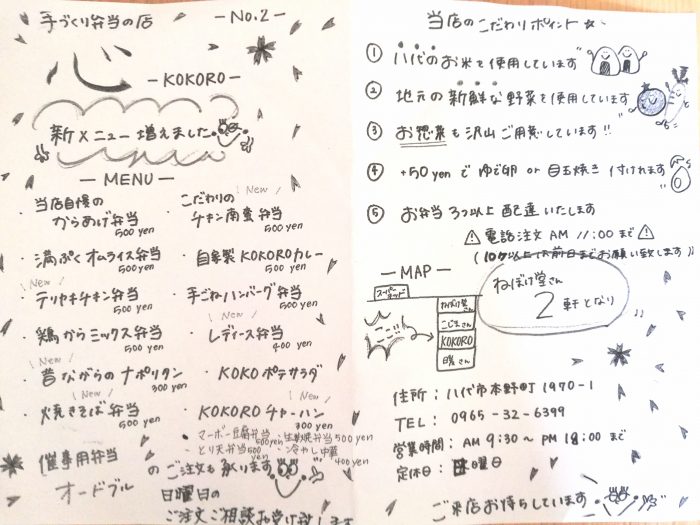 手づくり弁当の店 -No.2-
心 -KOKORO-
新メニュー増えました
-MENU-
・当店自慢の
からあげ弁当
500 yen
・満ぷくオムライス弁当
500 yen
New
・テリヤキチキン弁当
500 yen
・鶏からミックス弁当
500 yen
New
・昔ながらのナポリタン
300 yen
New
・焼きそば弁当
500 yen
New
・こだわりの
チキン南蛮弁当
500 yen
・自家製KOKOROカレー
500 yen
・手ごねハンバーグ弁当
500 yen
New
・レディース弁当
400 yen
・KOKOポテサラダ
New
・KOKOROチャーハン
300 yen
・マーボー豆腐弁当500yen
・生姜焼弁当500yen
・とり天弁当500yen
・冷やし中華400yen
催事用弁当
オードブル
のご注文も承ります
日曜日の
ご注文ご相談お受け致します
当店のこだわりポイント☆
① 八代のお米を使用しています
② 地元の新鮮な野菜を使用しています
③ お惣菜も沢山ご用意しています!!
④ +50yenでゆで卵 or 目玉焼き付けれます
⑤ お弁当3つ以上配達いたします
⚠電話注文 AM 11:00まで⚠
(10ヶ以上は前日までお願い致します)
-MAP-
スーパー
ここ
ねぼけ堂さん
こじまさん
KOKORO
日曜さん
ねぼけ堂さん
2軒となり
住所:八代市本野町1970-1
TEL: 0965-32-6399
営業時間:AM 9:30~PM 18:00まで
定休日:日曜日
ご来店お待ちしています